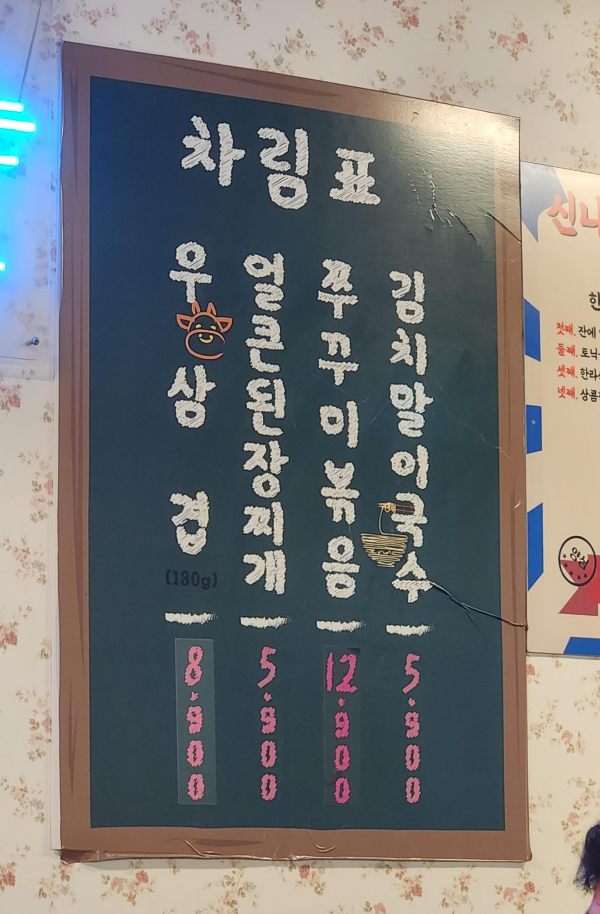 차림표
우삼겹
(130g)
8.900
얼큰된장찌개
5.900
쭈꾸미볶음
12.900
김치말이국수
5.900
첫째.
둘째.
셋째.
넷째.